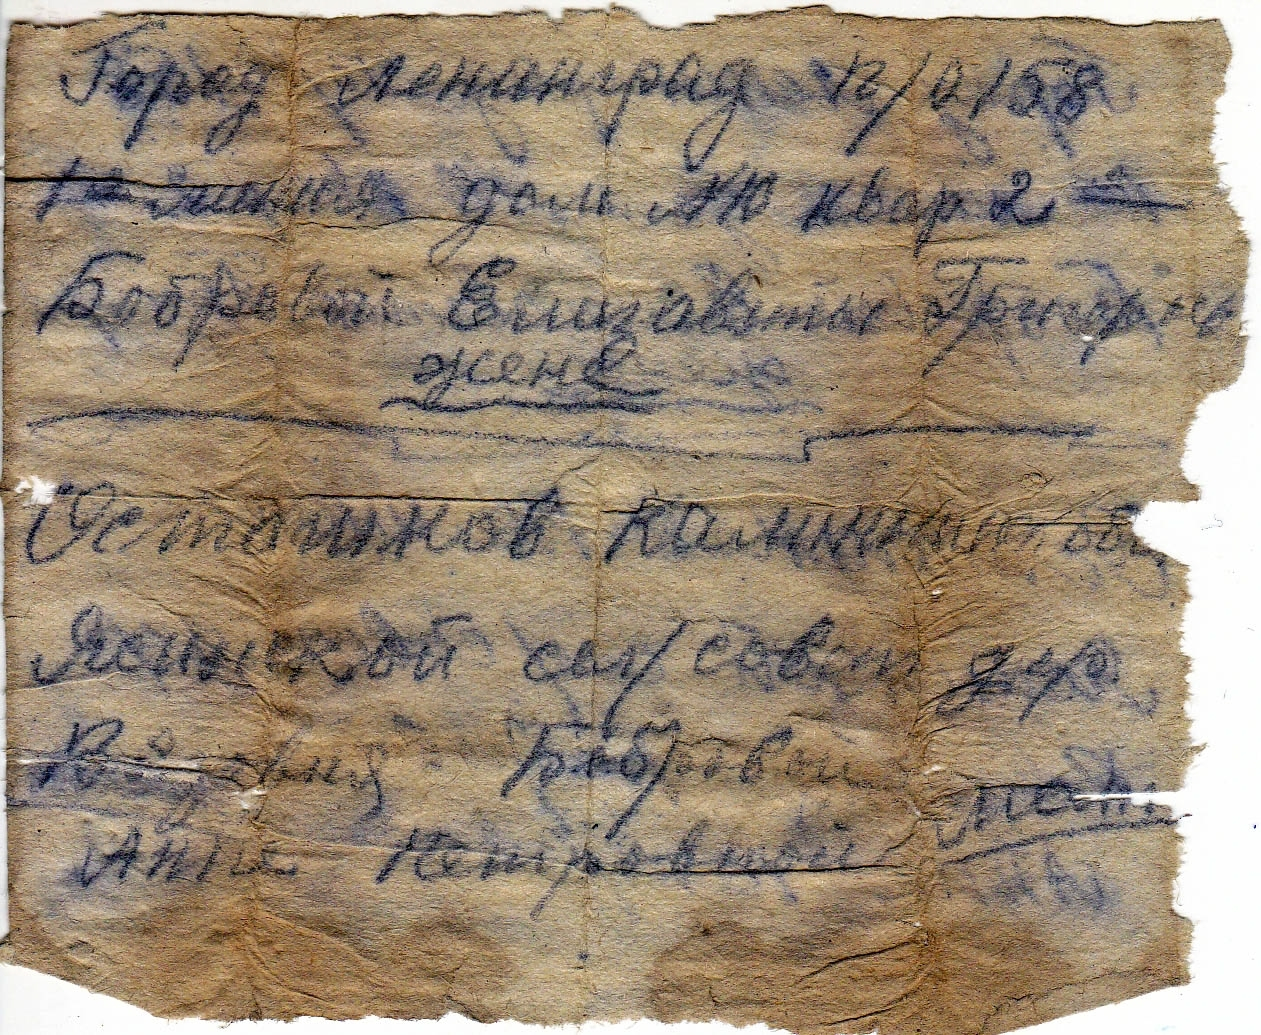 Город Ленинград В/О 15 в
линия дом № 10 квар 2
Бобровой Елизавты Григорьев
жене
Осташков Калининск обл
Ясенской сел/совет дер
Бобровой мать
Анне Петровной